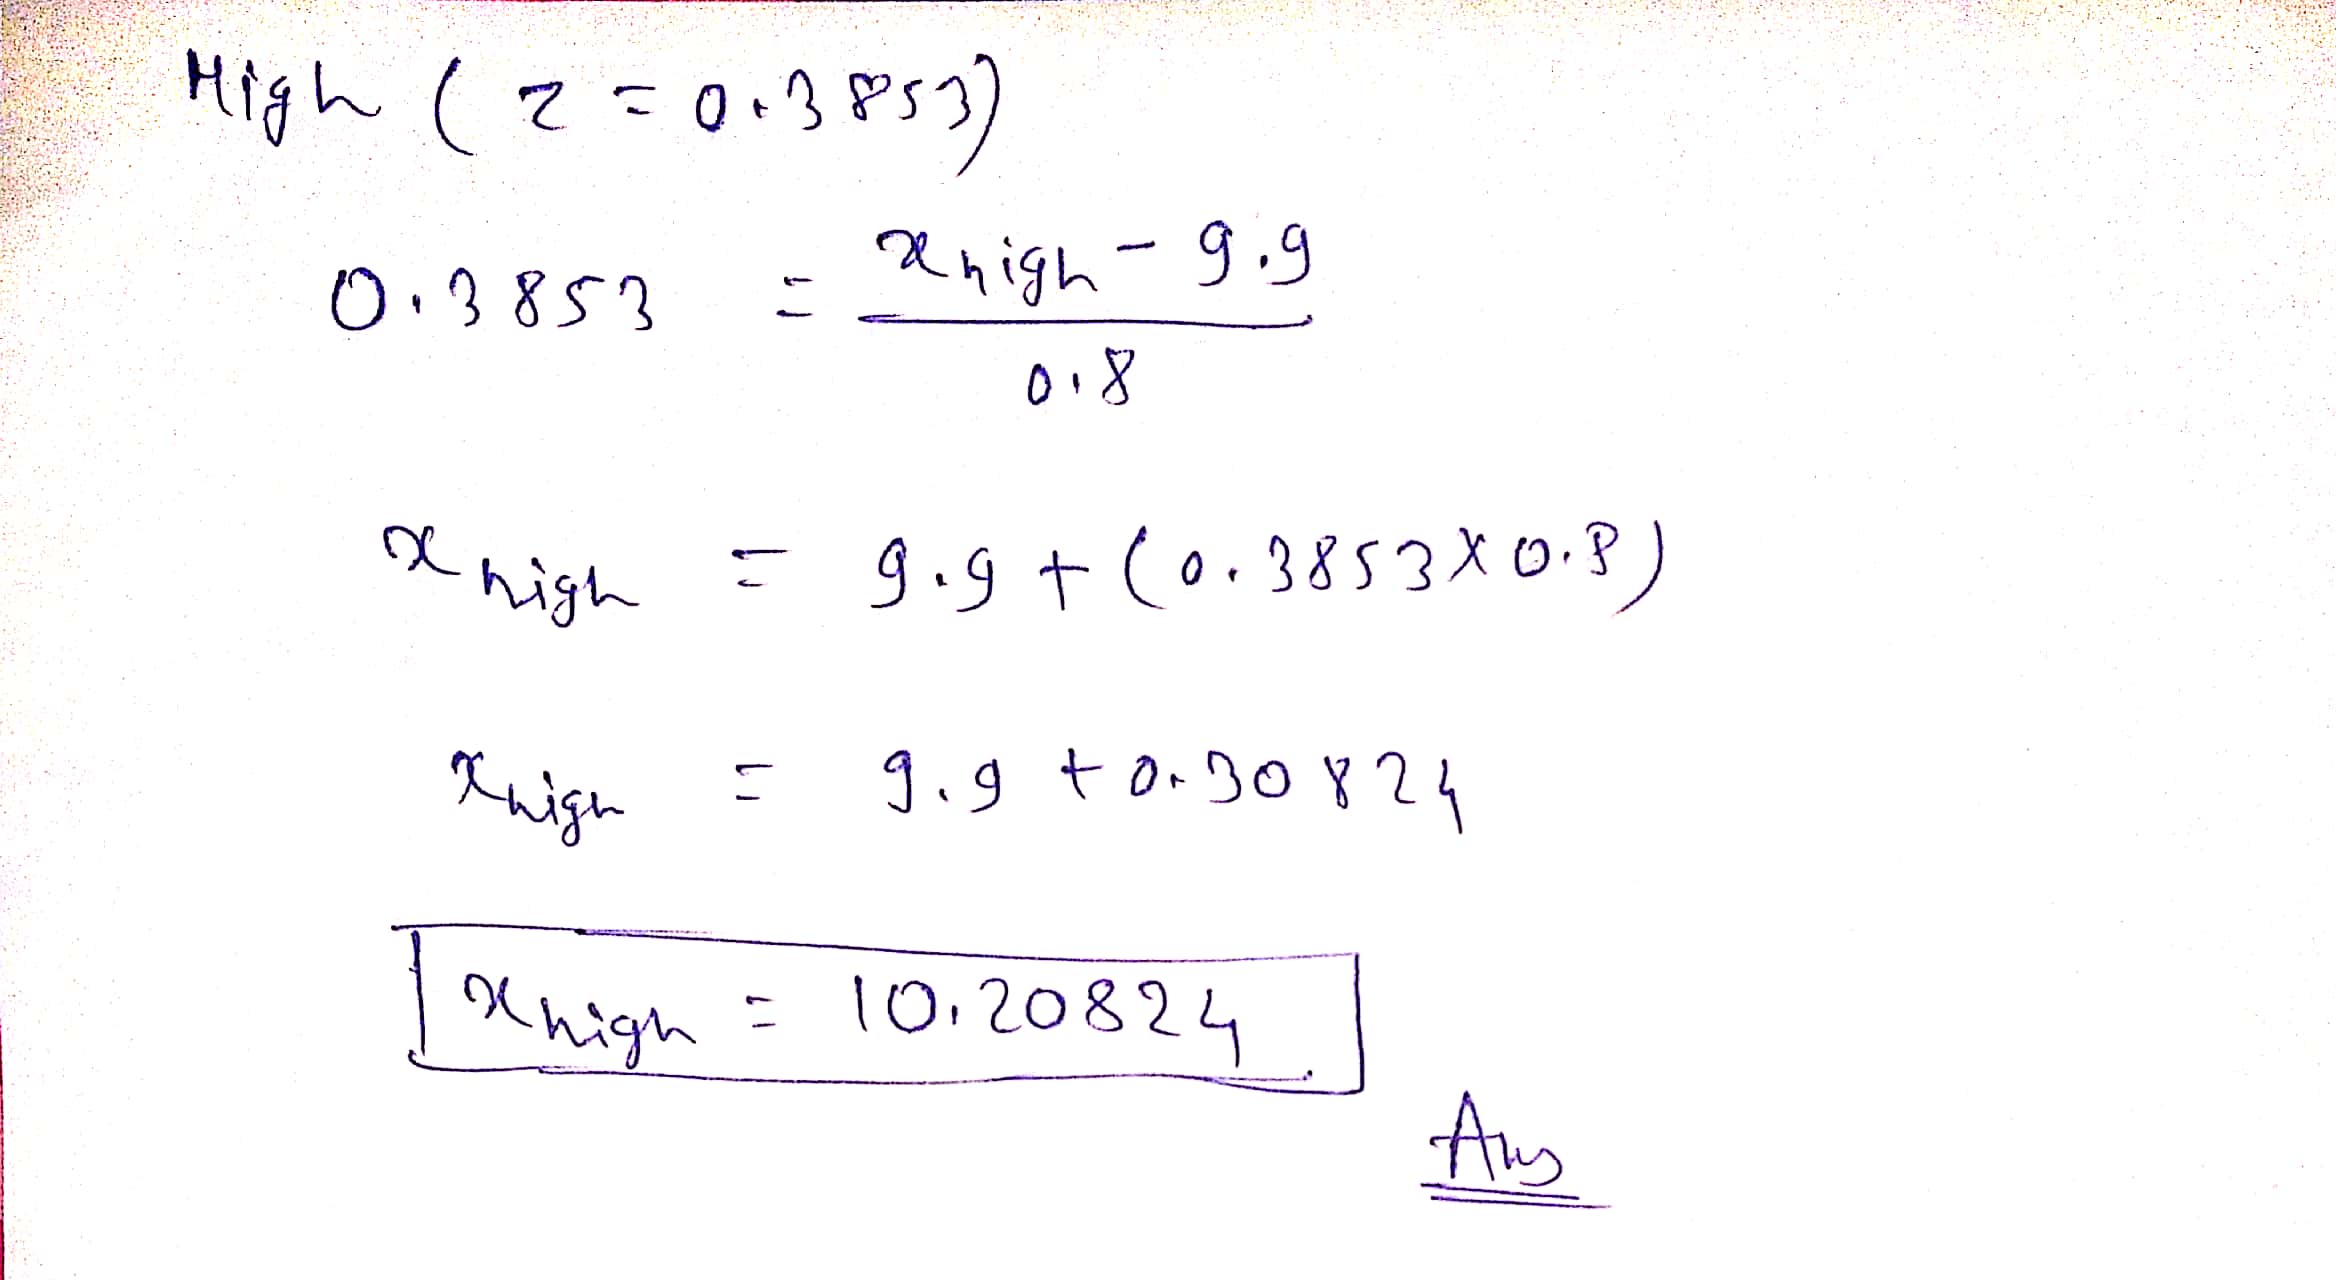 High (z = 0.3853)
0.3853 = (x high - 9.9) / 0.8
x high = 9.9 + (0.3853 x 0.8)
x high = 9.9 + 0.30824
x high = 10.20824
Ans